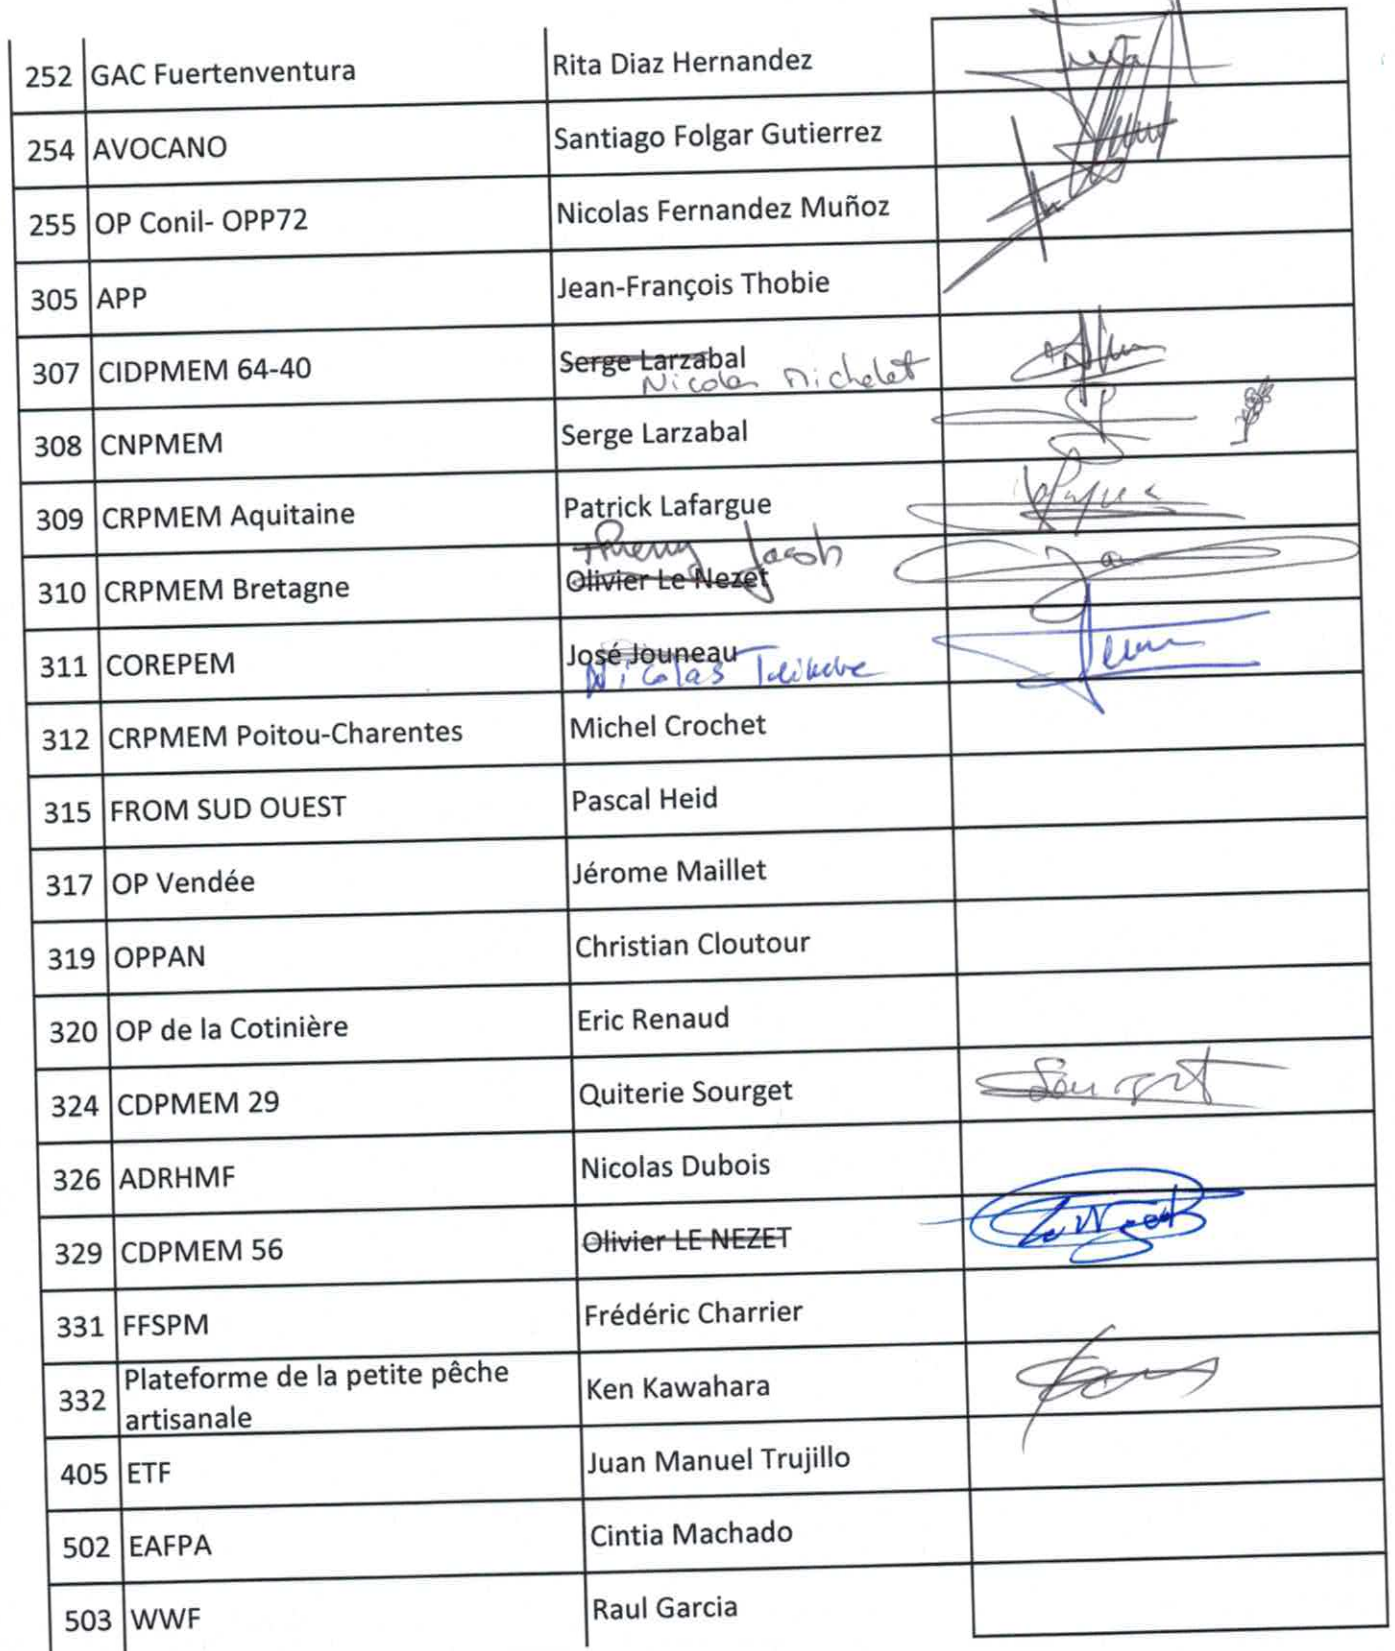 252 GAC Fuertenventura Rita Diaz Hernandez
254 AVOCANO Santiago Folgar Gutierrez
255 OP Conil- OPP72 Nicolas Fernandez Muñoz
305 APP Jean-François Thobie
307 CIDPMEM 64-40 Serge Larzabal
Nicolas Michelet
308 CNPMEM Serge Larzabal
309 CRPMEM Aquitaine Patrick Lafargue
Thierry Jacob
310 CRPMEM Bretagne Olivier Le Nezet
311 COREPEM José Jouneau
Nicolas
312 CRPMEM Poitou-Charentes Michel Crochet
315 FROM SUD OUEST Pascal Heid
317 OP Vendée Jérome Maillet
319 OPPAN Christian Cloutour
320 OP de la Cotinière Eric Renaud
324 CDPMEM 29 Quiterie Sourget Sourget
326 ADRHMF Nicolas Dubois
329 CDPMEM 56 Olivier LE NEZET
331 FFSPM Frédéric Charrier
332 Plateforme de la petite pêche
artisanale Ken Kawahara
405 ETF Juan Manuel Trujillo
502 EAFPA Cintia Machado
503 WWF Raul Garcia